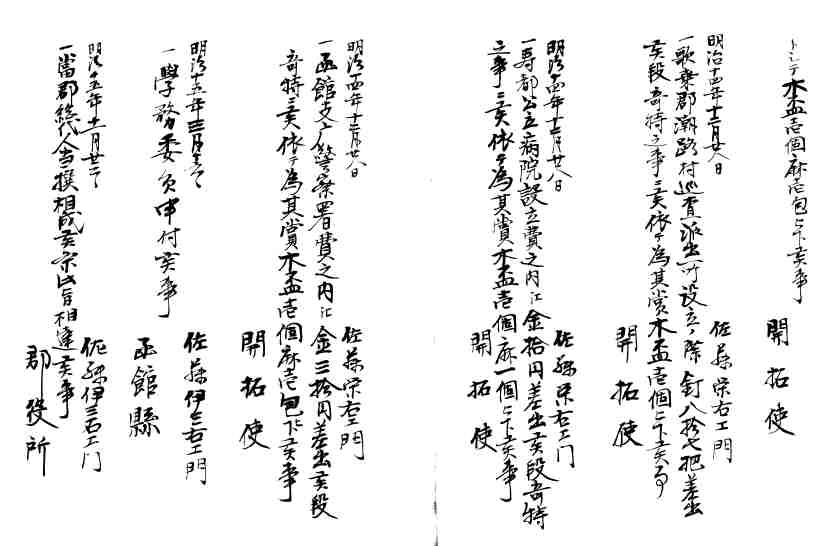 トシテ木盃壱個麻壱包下候事
開拓使
明治十四年十二月廿八日
佐藤栄右エ門
一歌棄郡潮路村巡査派出所設立ノ際釘八拾七把差出
候段奇特之事ニ候依テ為其賞木盃壱個下候事
開拓使
明治十四年十二月廿八日
佐藤栄右エ門
一寿都公立病院設立費之内江金拾円差出候段奇特
之事ニ候依テ為其賞木盃壱個麻一個下候事
開拓使
明治十四年十二月廿八日
佐藤栄右エ門
一函館支庁警察署費之内江金三拾円差出候段
奇特ニ候依テ為其賞木盃壱個麻壱包下候事
開拓使
明治十五年三月
佐藤伊三右エ門
一学務委員申付候事
函館縣
明治十五年十一月廿二日
佐藤伊三右エ門
一当郡総代人当撰相成候条此旨相達候事
郡役所